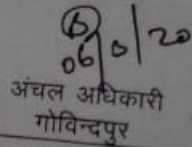 06/0/20
अंचल अधिकारी
गोविन्दपुर